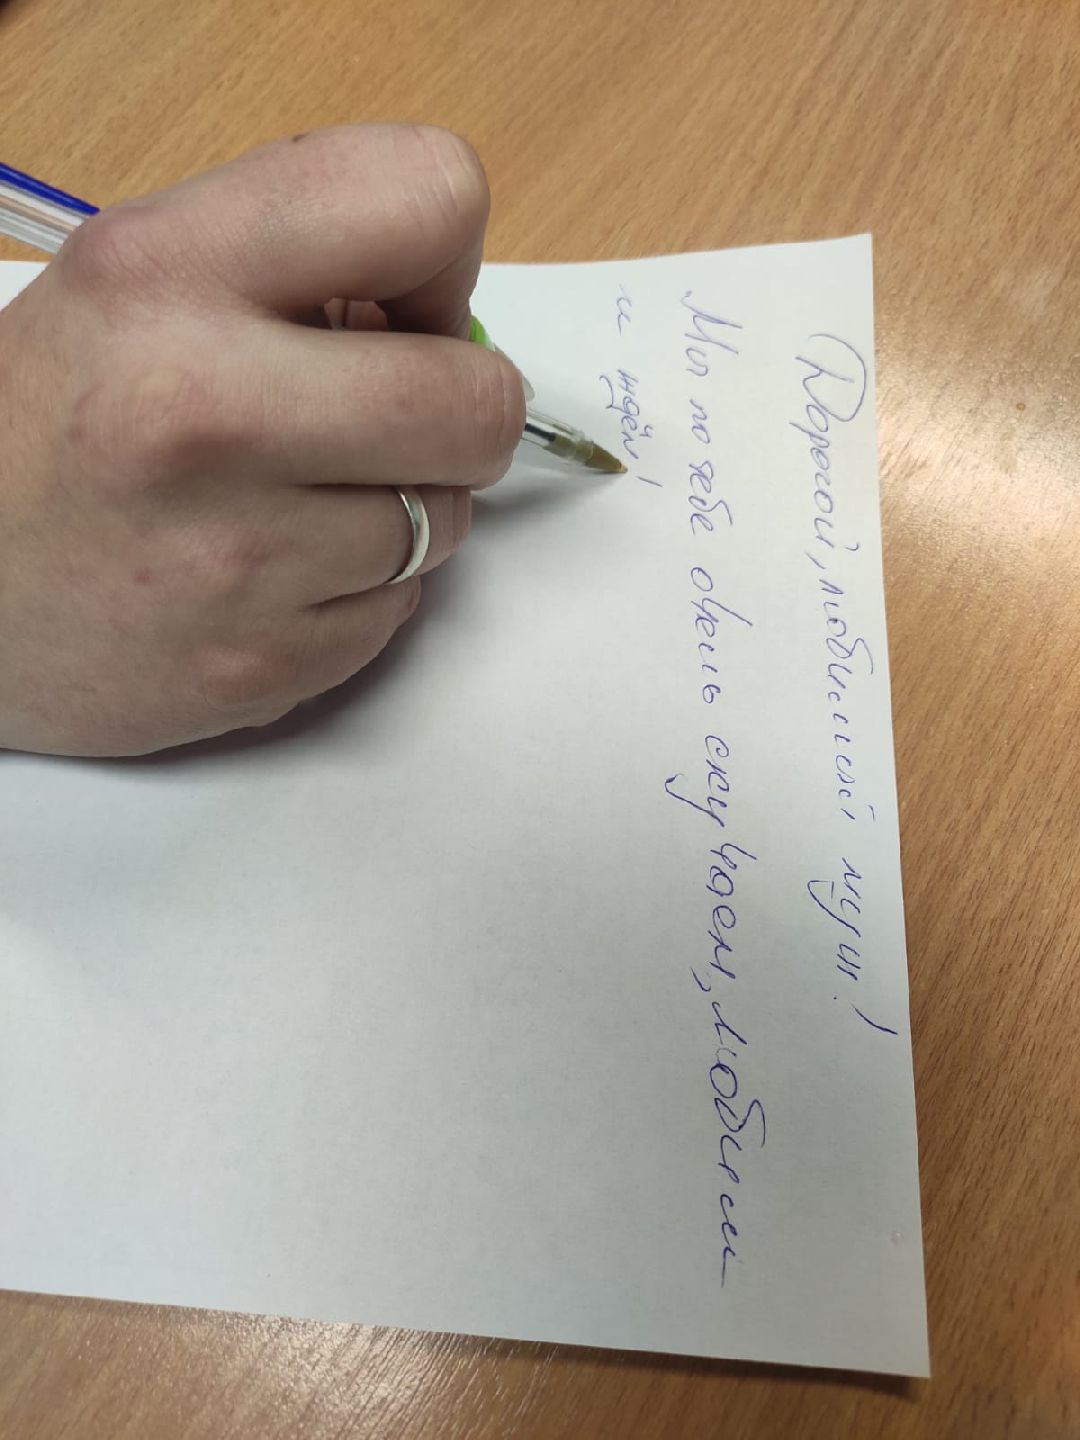 Дорогой, любимый муж!
Мы по тебе очень скучаем, любим
и ждём!